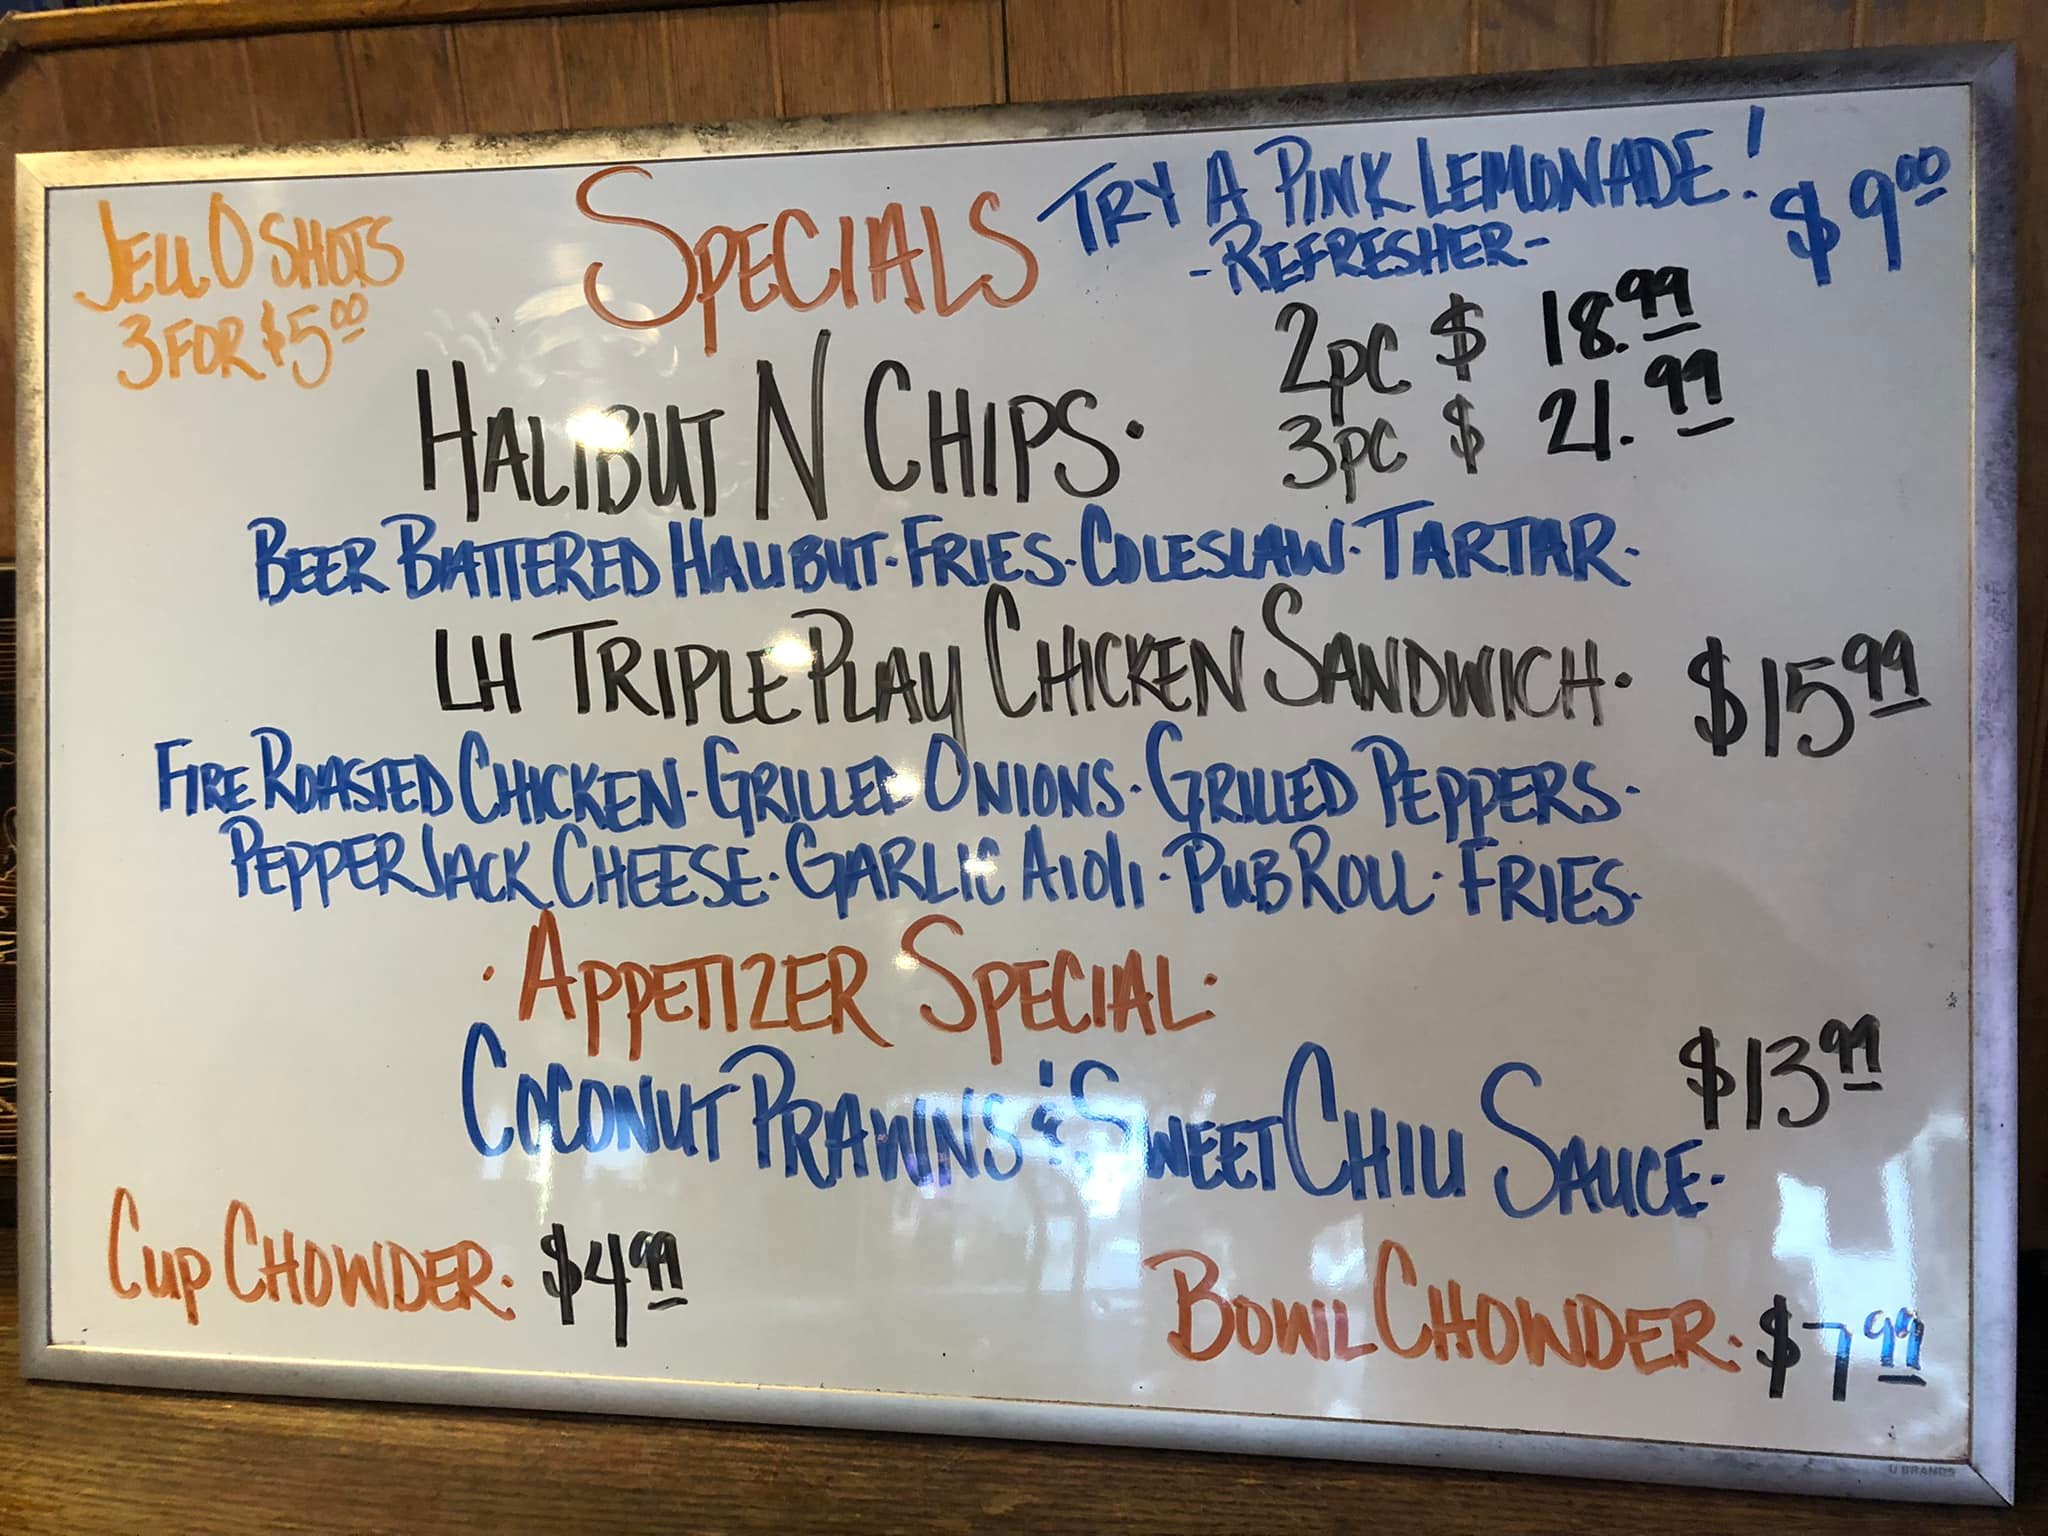 JELL O SHOTS
3 FOR $5.00
SPECIALS
TRY A PINK LEMONADE! $9.00
-REFRESHER-
2pc $ 18.99
HALIBUT N CHIPS. 3pc $ 21.99
BEER BATTERED HALIBUT. FRIES. COLESLAW. TARTAR.
LH TRIPLE PLAY CHICKEN SANDWICH. $15.99
FIRE ROASTED CHICKEN. GRILLED ONIONS. GRILLED PEPPERS.
PEPPER JACK CHEESE. GARLIC AIOLI. PUB ROLL. FRIES.
. APPETIZER SPECIAL.
COCONUT PRAWNS & SWEET CHILI SAUCE. $13.99
CUP CHOWDER. $4.99
BOWL CHOWDER. $7.99
U BRANDS